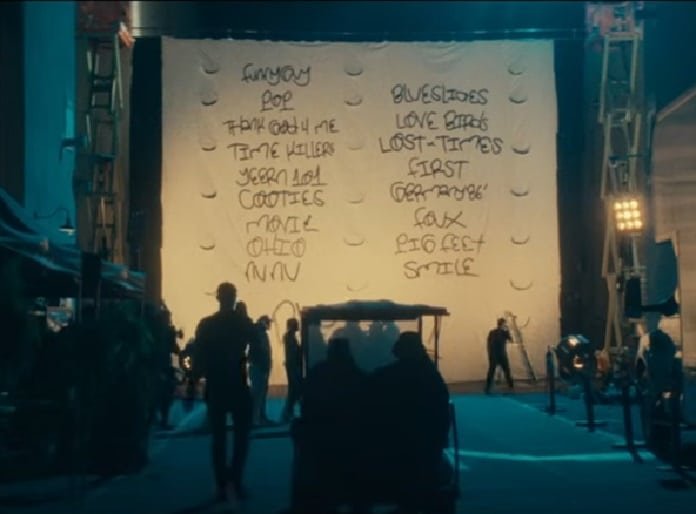 FUNNYGUY
POP
THANK GOD 4 ME
TIME KILLERS
YEERN 101
COOTIES
MOVIE
OHIO
NVN
BLUESLIDES
LOVE BIRDS
LOST-TIMES
FIRST
GERMANY86'
FOUX
PIG FEET
SMILE